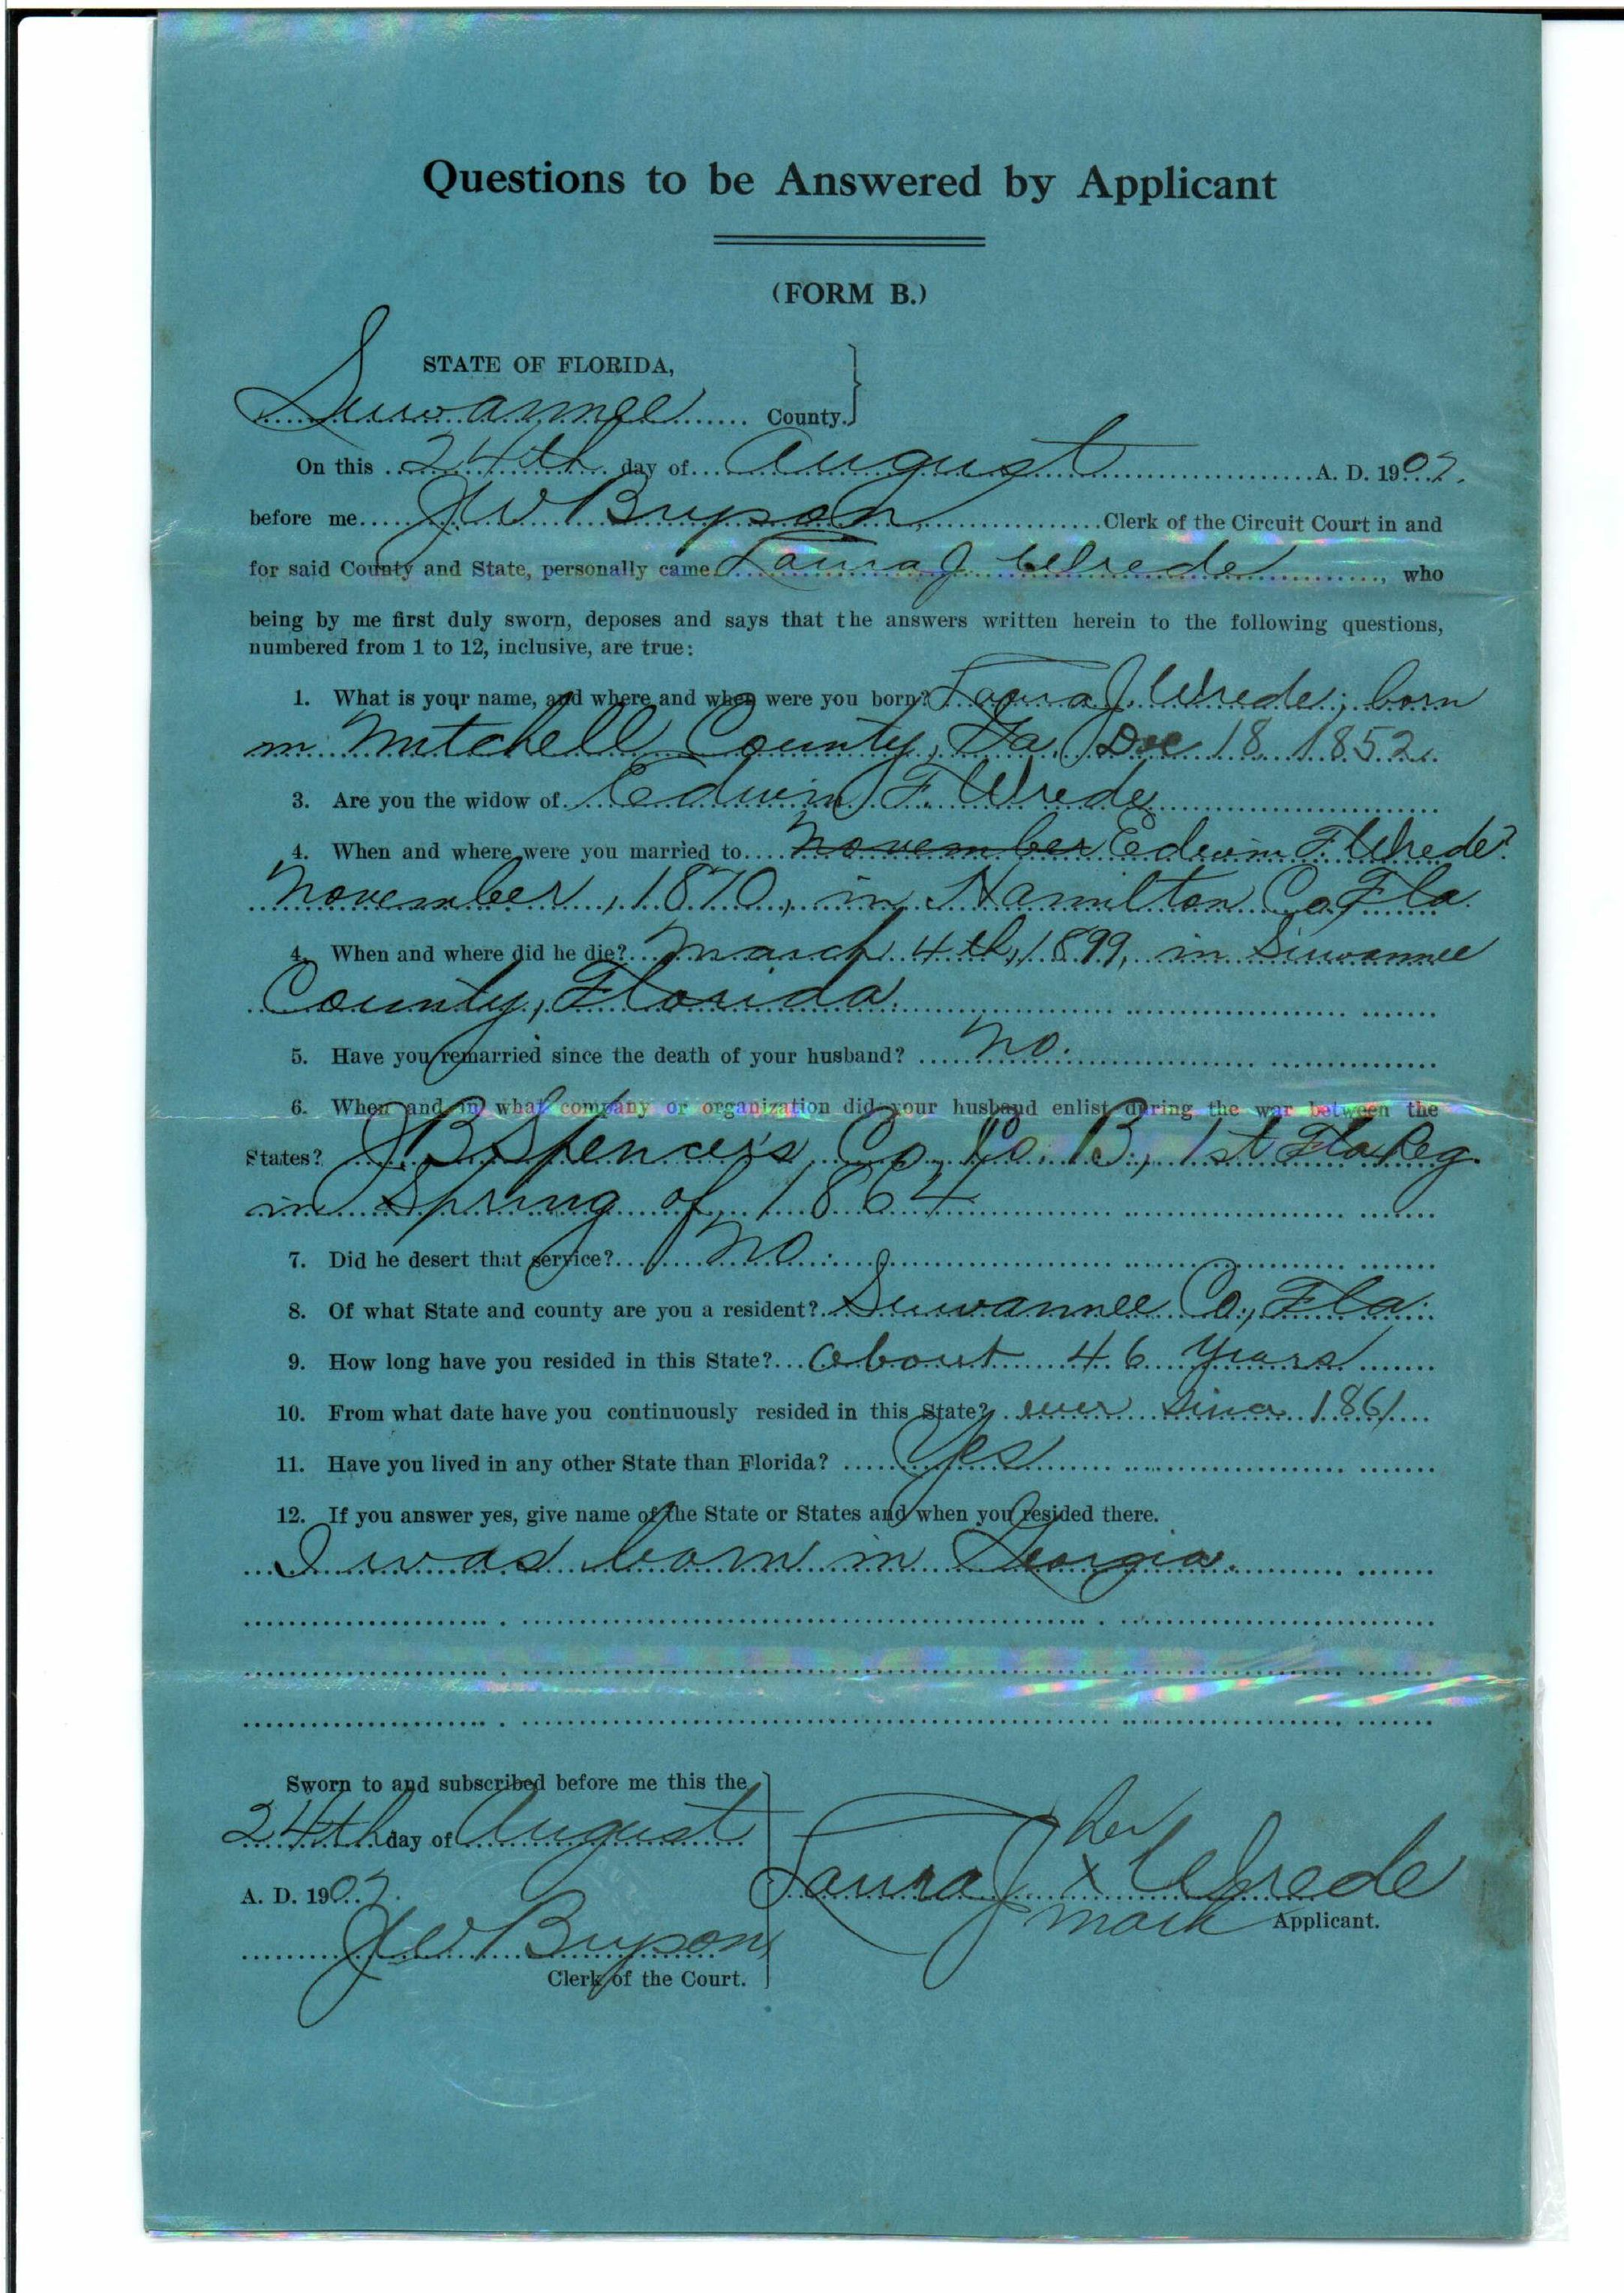 Questions to be Answered by Applicant
(FORM B.)
STATE OF FLORIDA,
Suwannee County.
On this 24th day of August A. D. 1907.
before me J W Bryson Clerk of the Circuit Court in and
for said County and State, personally came Laura J Wrede, who
being by me first duly sworn, deposes and says that the answers written herein to the following questions,
numbered from 1 to 12, inclusive, are true:
1. What is your name, and where and when were you born? Laura J. Wrede; born
in Mitchell County, Ga. Dec 18 1852.
3. Are you the widow of Edwin F. Wrede
4. When and where were you married to November Edwin F. Wrede?
November, 1870, in Hamilton Co, Fla.
4. When and where did he die? March 4th, 1899, in Suwannee
County, Florida.
5. Have you remarried since the death of your husband? No.
6. When and in what company or organization did your husband enlist during the war between the
States? J. B. Spencer's Co, Co. B, 1st Fla Reg.
in Spring of 1864
7. Did he desert that service? No.
8. Of what State and county are you a resident? Suwannee Co., Fla.
9. How long have you resided in this State? About 46 years
10. From what date have you continuously resided in this State? ever since 1861
11. Have you lived in any other State than Florida? Yes
12. If you answer yes, give name of the State or States and when you resided there.
I was born in Georgia.
Sworn to and subscribed before me this the
24th day of August
A. D. 1907.
J W Bryson
Clerk of the Court.
her
Laura J x Wrede
mark Applicant.